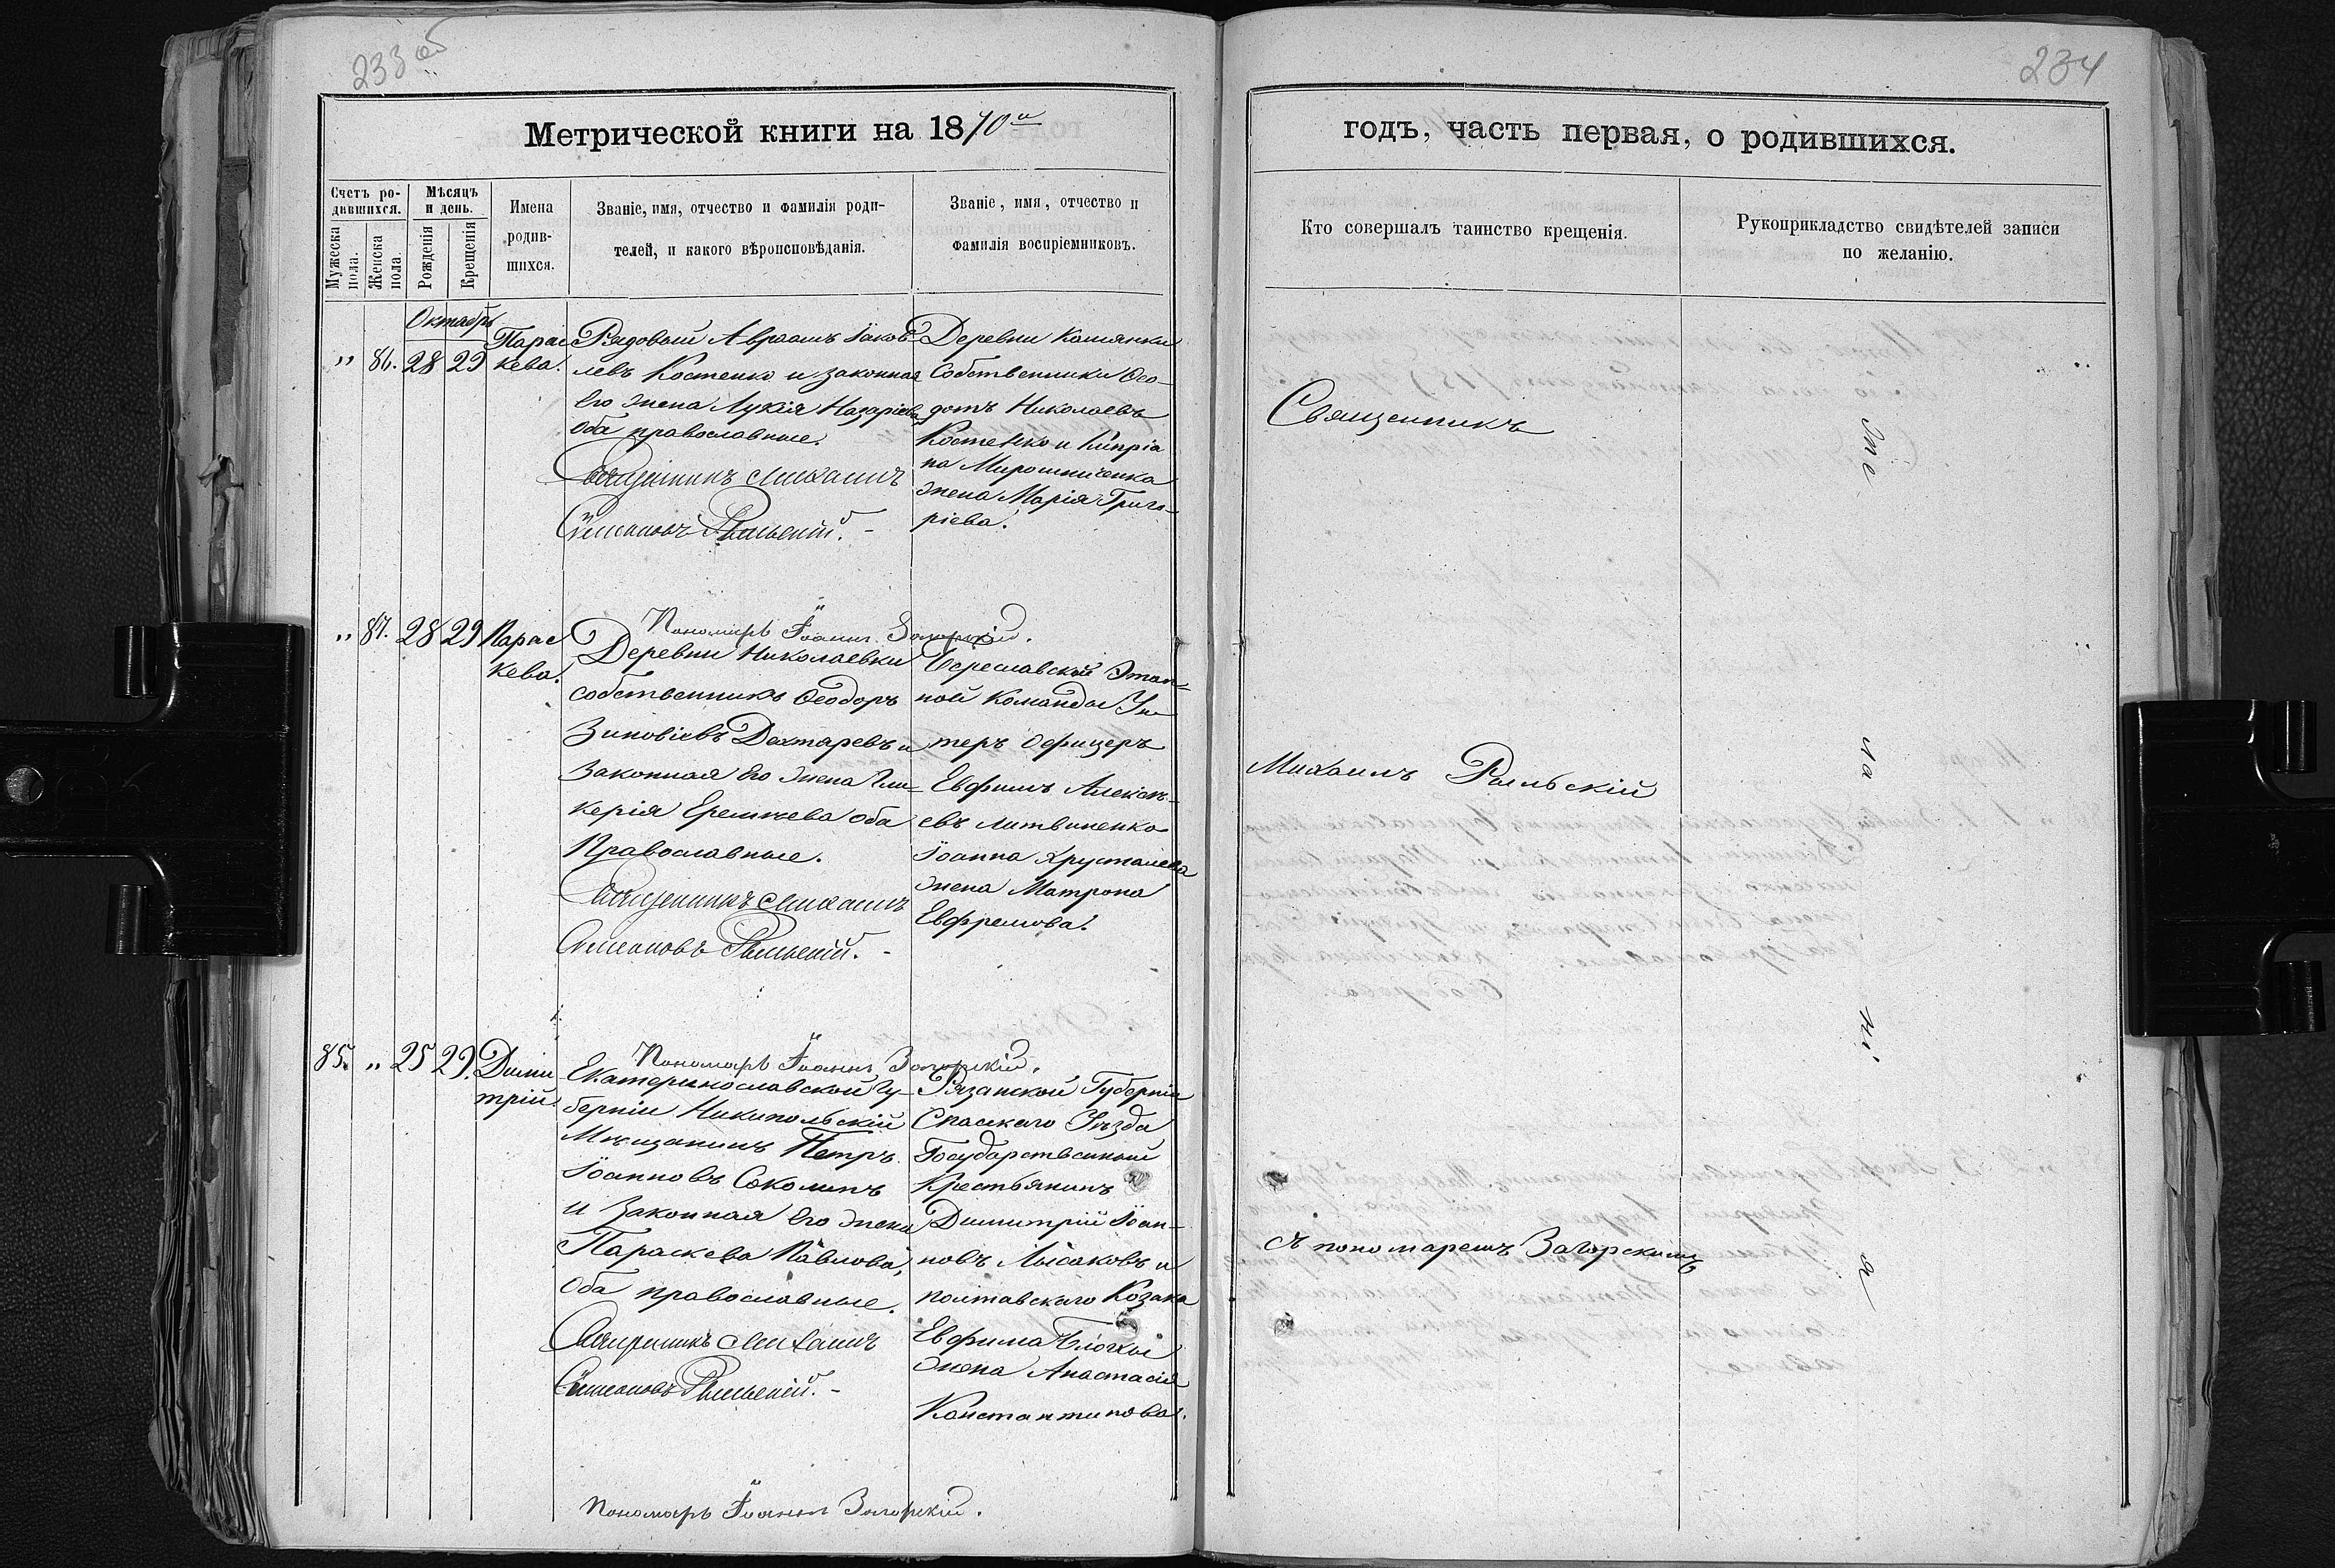 233 об
234
Метрической книги на 1870й
годъ, часть первая, о родившихся.
Счетъ родившихся.
Мужеска пола.
Женска пола.
Мѣсяцъ и день.
Рожденія
Крещенія
Имена родившихся.
Званіе, имя, отчество и фамилія родителей, и какого вѣроисповѣданія.
Званіе, имя, отчество и фамилія воспріемниковъ.
Кто совершалъ таинство крещенія.
Рукоприкладство свидѣтелей записи по желанію.
Октябрь
„ 86. 28 29
Парас
кева.
Рядовый Авраамъ Іаков
левъ Костенко и законная
Его жена Лукія Назаріева
Оба православные.
Священникъ Михаилъ
Симеоновъ Рыльскій. -
Пономарь Іоаннъ Загорскій.
Деревни Камянки
Собственники Ѳео-
дотъ Николаевъ
Костенко и Кипріа
на Мирошниченка
жена Марія Григо-
ріева.
„ 87. 28 29
Парас
кева.
Деревни Николаевки
собственникъ Ѳеодоръ
Зиновіевъ Дехтаревъ и
Законная Его жена Гли-
керія Еремѣева оба
Православные.
Священникъ Михаилъ
Симеоновъ Рыльскій. -
Пономарь Іоаннъ Загорскій.
Береславской Этап-
ной Команды Ун-
теръ Офицеръ
Евфимъ Алексѣ-
евъ Литвиненко
Іоанна Хрусталева
жена Матрона
Евфремова.
85. „ 25 29.
Дими
трій.
Екатеринославской Гу-
берніи Никипольскій
Мѣщанинъ Петръ
Іоанновъ Соколинъ
и Законная Его жена
Параскева Павлова,
Оба православные.
Священникъ Михаилъ
Симеоновъ Рыльскій. -
Пономарь Іоаннъ Загорскій.
Рязанской Губерніи
Спаскаго Уѣзда
Государственный
Крестьянинъ
Димитрій Іоан-
новъ Лысаковъ и
полтавскаго Козака
Евфима
жена Анастасія
Константинова.
Священникъ
Михаилъ Рыльскій
съ пономаремъ Загорскимъ